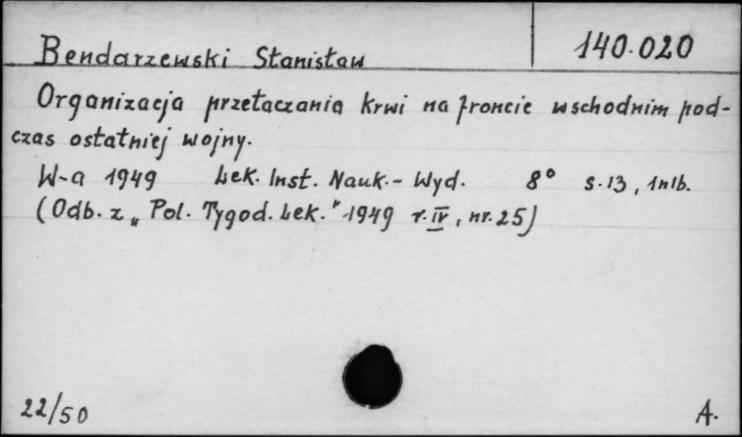 Bendarzewski Stanisław 140.020
Organizacja przetaczania krwi na froncie wschodnim pod-
czas ostatniej wojny.
W-a 1949 Lek. Inst. Nauk.- Wyd. 8° s. 13, 1nlb.
(Odb. z „Pol. Tygod. Lek." 1949 r. IV, nr. 25)
22/50 A.